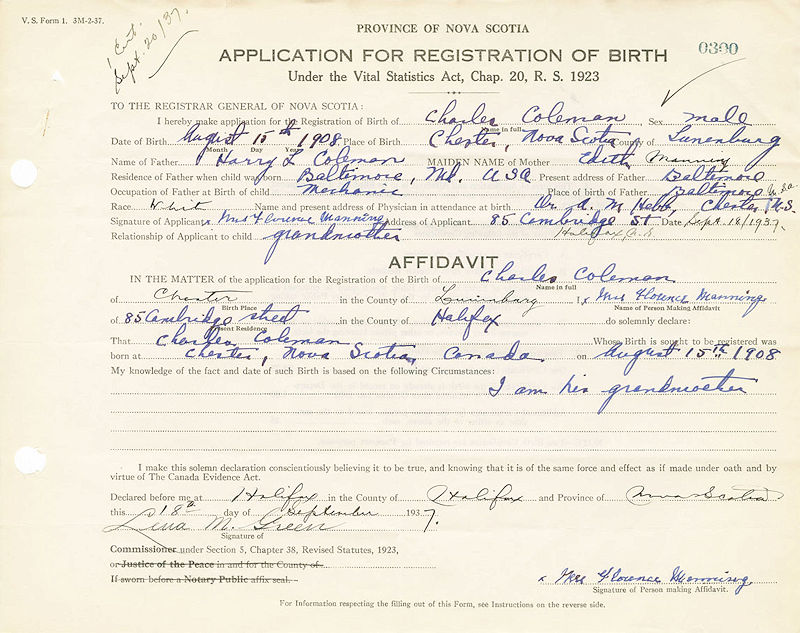 V. S. Form 1. 3M-2-37.
1 Cert.
Sept. 20/37.
PROVINCE OF NOVA SCOTIA
APPLICATION FOR REGISTRATION OF BIRTH
0300
Under the Vital Statistics Act, Chap. 20, R. S. 1923
TO THE REGISTRAR GENERAL OF NOVA SCOTIA:
I hereby make application for the Registration of Birth of Charles Coleman, Sex male
Name in full
Date of Birth August 15th 1908 Place of Birth Chester, Nova Scotia County of Lunenburg
Month Day Year
Name of Father Harry L Coleman MAIDEN NAME of Mother Edith Manning
Residence of Father when child was born Baltimore, Md. USA Present address of Father Baltimore
Occupation of Father at Birth of child Mechanic Place of birth of Father Baltimore U.S.a.
Race White Name and present address of Physician in attendance at birth Dr. A. M. Hebb, Chester N.S.
Signature of Applicant x Mrs Florence Manning Address of Applicant 85 Cambridge St Date Sept. 18/1937.
Halifax N.S.
Relationship of Applicant to child grandmother
AFFIDAVIT
IN THE MATTER of the application for the Registration of the Birth of Charles Coleman
Name in full
of Chester in the County of Lunenburg I x Mrs Florence Manning
Birth Place Name of Person Making Affidavit
of 85 Cambridge street in the County of Halifax do solemnly declare:
Present Residence
That Charles Coleman Whose Birth is sought to be registered was
born at Chester, Nova Scotia, Canada on August 15th 1908
My knowledge of the fact and date of such Birth is based on the following Circumstances:
I am his grandmother
I make this solemn declaration conscientiously believing it to be true, and knowing that it is of the same force and effect as if made under oath and by
virtue of The Canada Evidence Act.
Declared before me at Halifax in the County of Halifax and Province of Nova Scotia
this 18th day of September 1937.
Lena M. Green
Signature of
Commissioner under Section 5, Chapter 38, Revised Statutes, 1923,
or Justice of the Peace in and for the County of
If sworn before a Notary Public affix seal.
x Mrs Florence Manning
Signature of Person making Affidavit.
For Information respecting the filling out of this Form, see Instructions on the reverse side.